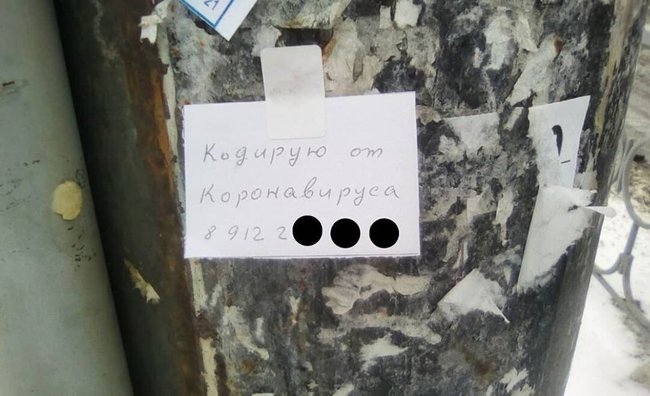 21
Кодирую от
Коронавируса
8 912 2